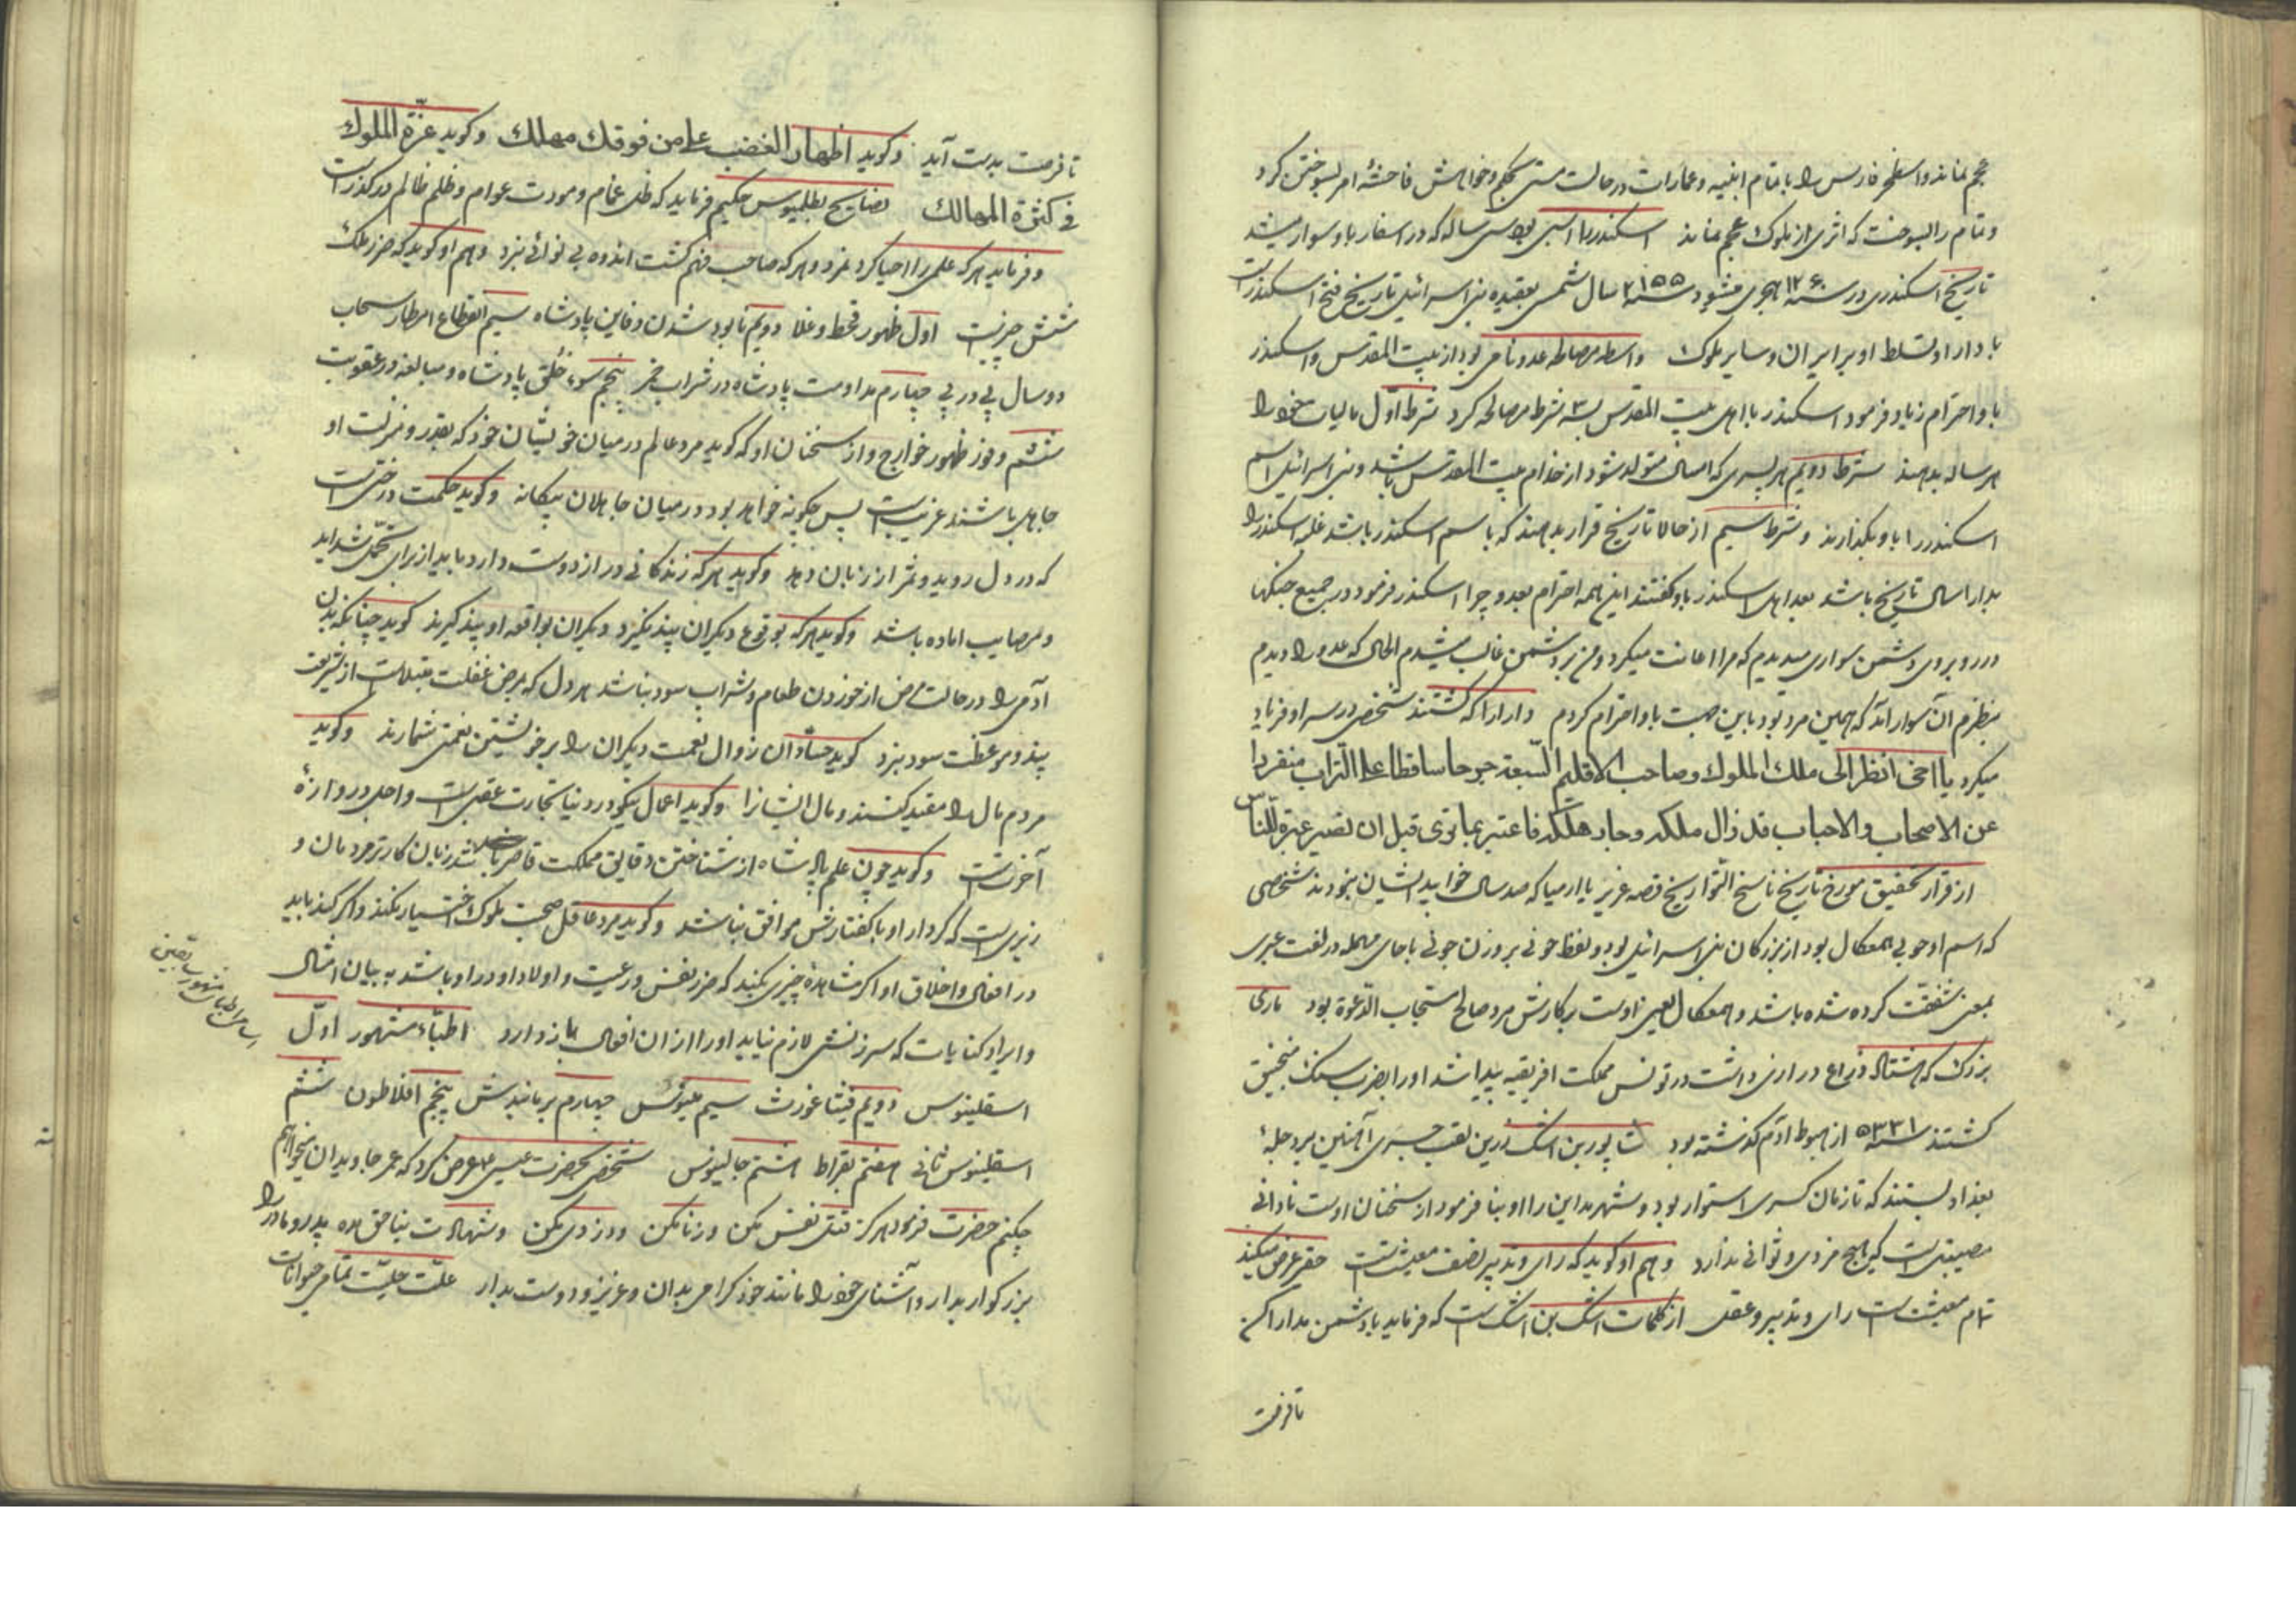 عجم نماند و اسطخر فارس را با تمام ابنیه و عمارات در حالت مستی بحکم و خواهش فاحشهٔ امر بسوختن کرد
و تمام را بسوخت که اثری از ملوک عجم نماند اسکندر را اسبی بود سی ساله که در اسفار باو سوار میشد
تاریخ اسکندری در سنه ۱۲۶۰ هجری میشود سنه ۲۱۵۵ سال شمسی بعقیده بنی اسرائیل تاریخ فتح اسکندر است
با دارا و تسلط او بر ایران و سایر ملوک واسطه مصالحه عدو نامی بود از بیت المقدس و اسکندر
باو احترام زیاد فرمود اسکندر با اهل بیت المقدس بسه شرط مصالحه کرد شرط اول مالیات خود را
هر ساله بدهند شرط دویم هر پسری که امسال متولد شود از خدام بیت المقدس باشد و بنی اسرائیل اسم
اسکندر را باو بگذارند و شرط سیم از حالا تاریخ قرار بدهند که باسم اسکندر باشد غلبه اسکندر را
بدارا سال تاریخ باشد بعد اهل اسکندر باو گفتند این همه احترام بعدو چرا اسکندر فرمود در جمیع جنگها
در روبروی دشمن سواری میدیدم که مرا اعانت میکرد و من بر دشمن غالب میشدم الحال که عدو را دیدم
بنظرم آن سوار آمد که همین مرد بود باین جهت باو احترام کردم دارا را که کشتند شخصی در سر او فریاد
میکرد یا اخی انظر الی ملک الملوک و صاحب الاقلیم السبعة جوحا ساقطا علی التراب منفردا
عن الاصحاب و الاحباب قد زال ملکه و حار هلکه فاعتبر بما تری قبل ان تصیر عبرة للناس
از قرار تحقیق مورخ تاریخ ناسخ التواریخ قصه عزیر یا ارمیا که صد سال خوابید ایشان نبودند شخصی
که اسم او حونی همعکال بود از بزرگان بنی اسرائیل بود و لفظ حونی بر وزن جونی با حای مهمله در لغت عبری
بمعنی شفقت کرده شده باشد و همعکال یعنی اوست پرکارش مرد صالح مستجاب الدعوة بود ماری
بزرگ که هشتاد ذراع درازی داشت در تونس مملکت افریقیه پیدا شد او را بضرب سنگ منجنیق
کشتند سنه ۵۳۳۱ از هبوط آدم گذشته بود شاپور بن اشک زرین لقب جسری آهنین بر دجلهٔ
بغداد بستند که تا زمان کسری استوار بود و شهر مداین را او بنا فرمود از سخنان اوست نادانی
مصیبتی است که هیچ مزدی و ثوابی ندارد و هم او گوید که رای و تدبیر نصف معیشت است حقیر عرض میکند
تمام معیشت است رای و تدبیر و عقل از کلمات اشک بن اشک است که فرماید با دشمن مدارا کن
تا فرصت
تا فرصت بدست آید و گوید اظهار الغضب علی من فوقک مهلک و گوید عزة الملوک
فی کثرة الممالک نصایح بطلمیوس حکیم فرماید که ظل غمام و مودت عوام و ظلم ظالم در گذر است
و فرماید هر که علمی را احیا کرد نمرد و هر که صاحب فهم گشت اندوه بی نوائی نبرد و هم او گوید که ضرر ملک
شش چیز است اول ظهور قحط و غلا دویم نابود شدن دفاین پادشاه سیم انقطاع امطار سحاب
دو سال پی در پی چهارم مداومت پادشاه در شراب خمر پنجم سوء خلق پادشاه و مبالغه در عقوبت
ششم وفور ظهور خوارج و از سخنان او که گوید مرد عالم در میان خویشان خود که بقدر و منزلت او
جاهل باشند غریب است پس چگونه خواهد بود در میان جاهلان بیگانه و گوید حکمت درختی است
که در دل روید و ثمر از زبان دهد و گوید هر که زندگانی دراز دوست دارد باید از برای تحمل شداید
و مصایب آماده باشد و گوید هر که بوقوع دیگران پند نگیرد دیگران بواقعه او پند گیرند گوید چنانکه بدن
آدمی را در حالت مرض از خوردن طعام و شراب سود نباشد هر دل که بمرض غفلت مبتلاست از شربت
پند و موعظت سود نبرد گوید حسّادان زوال نعمت دیگران را بر خویشتن نعمتی شمارند و گوید
مردم مال را مقید کنند و مال ایشانرا و گوید اعمال نیکو در دنیا تجارت عقبی است و اجل دروازهٔ
آخرت است و گوید چون علم پادشاه از شناختن دقایق مملکت قاصر باشد زبان کارتر مردمان و
زیری است که کردار او با گفتارش موافق نباشد و گوید مرد عاقل صحبت ملوک اختیار نکند و اگر کند باید
در افعال و اخلاق او اگر مشاهدهٔ چیزی بکند که ضرر نفس و رعیت و اولاد او در او باشد به بیان امثال
و ایراد کنایات که سرزنش لازم نیاید او را از ان افعال باز دارد اطبّاء مشهور اوّل
اسقلینوس دویم فیثاغورث سیم مینوس چهارم برمانیدس پنجم افلاطون ششم
اسقلینوس ثانی هفتم بقراط هشتم جالینوس شخصی بحضرت عیسی ع عرض کرد که عمر جاویدان میخواهم
چکنم حضرت فرمود هرگز قتل نفس مکن و زنا مکن و دزدی مکن و شهادت بناحق مده پدر و مادر را
بزرگوار بدار و آشنای خود را مانند خود گرامی بدان و عزیز و دوست بدار علّت حلیّت تمامی حیوانات